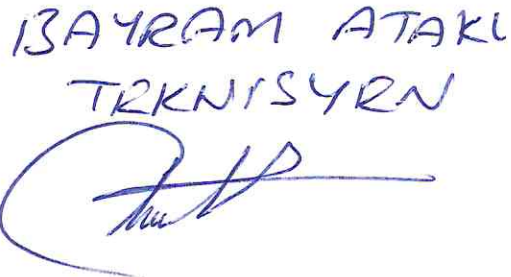 BAYRAM ATAKU
TEKNISYEN